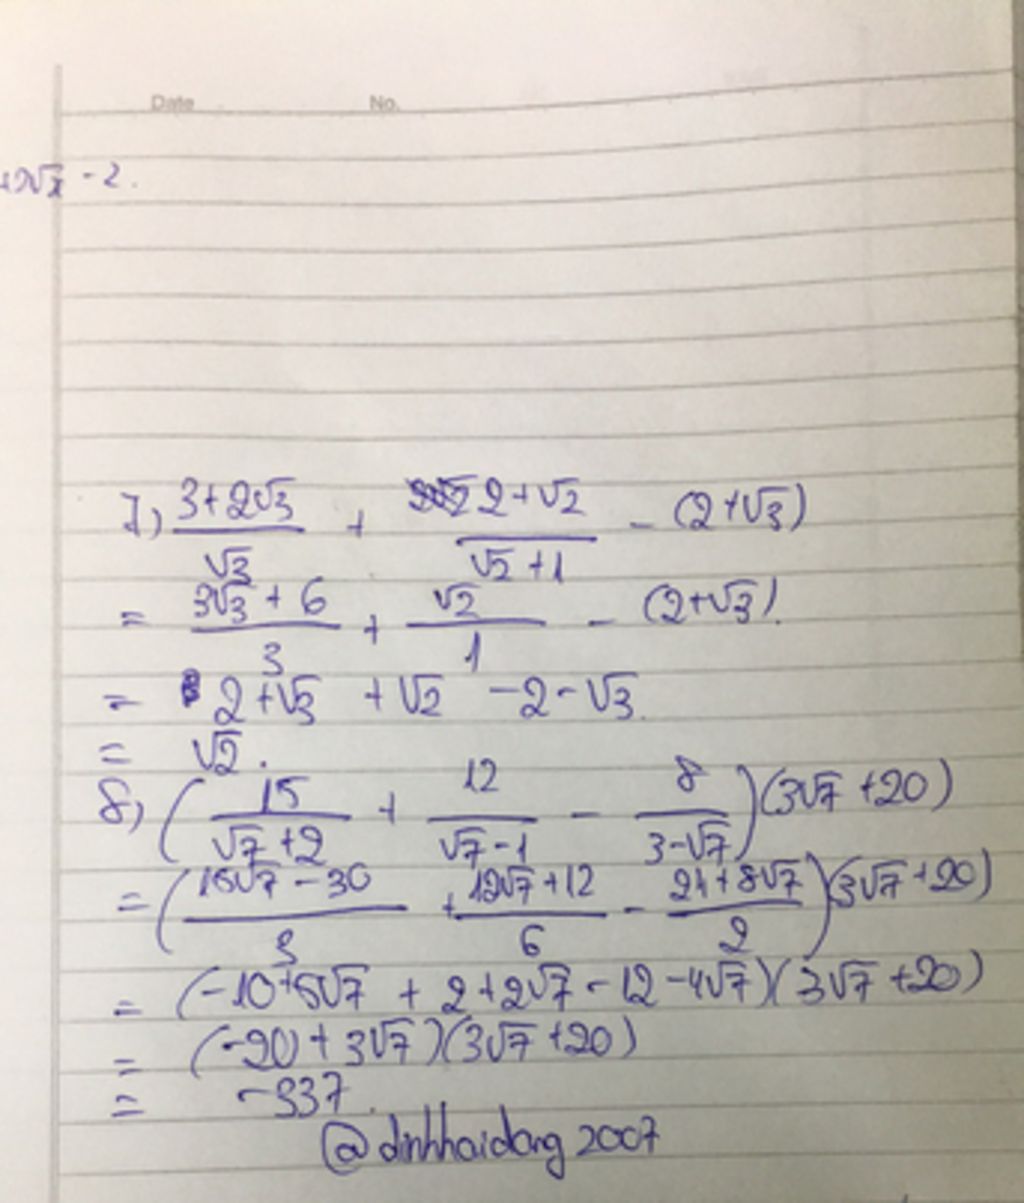 Date No.
+2√x - 2.
7) (3+2√3)/√3 + (2+√2)/(√2+1) - (2+√3)
= (3√3+6)/3 + √2/1 - (2+√3).
= 2+√3 +√2 -2-√3.
= √2.
8) (15/(√7+2) + 12/(√7-1) - 8/(3-√7))(3√7+20)
= ((15√7-30)/3 + (12√7+12)/6 - (24+8√7)/2)(3√7+20)
= (-10+5√7 + 2+2√7 - 12-4√7)(3√7+20)
= (-20+3√7)(3√7+20)
= -337.
@dinhhaidang2007